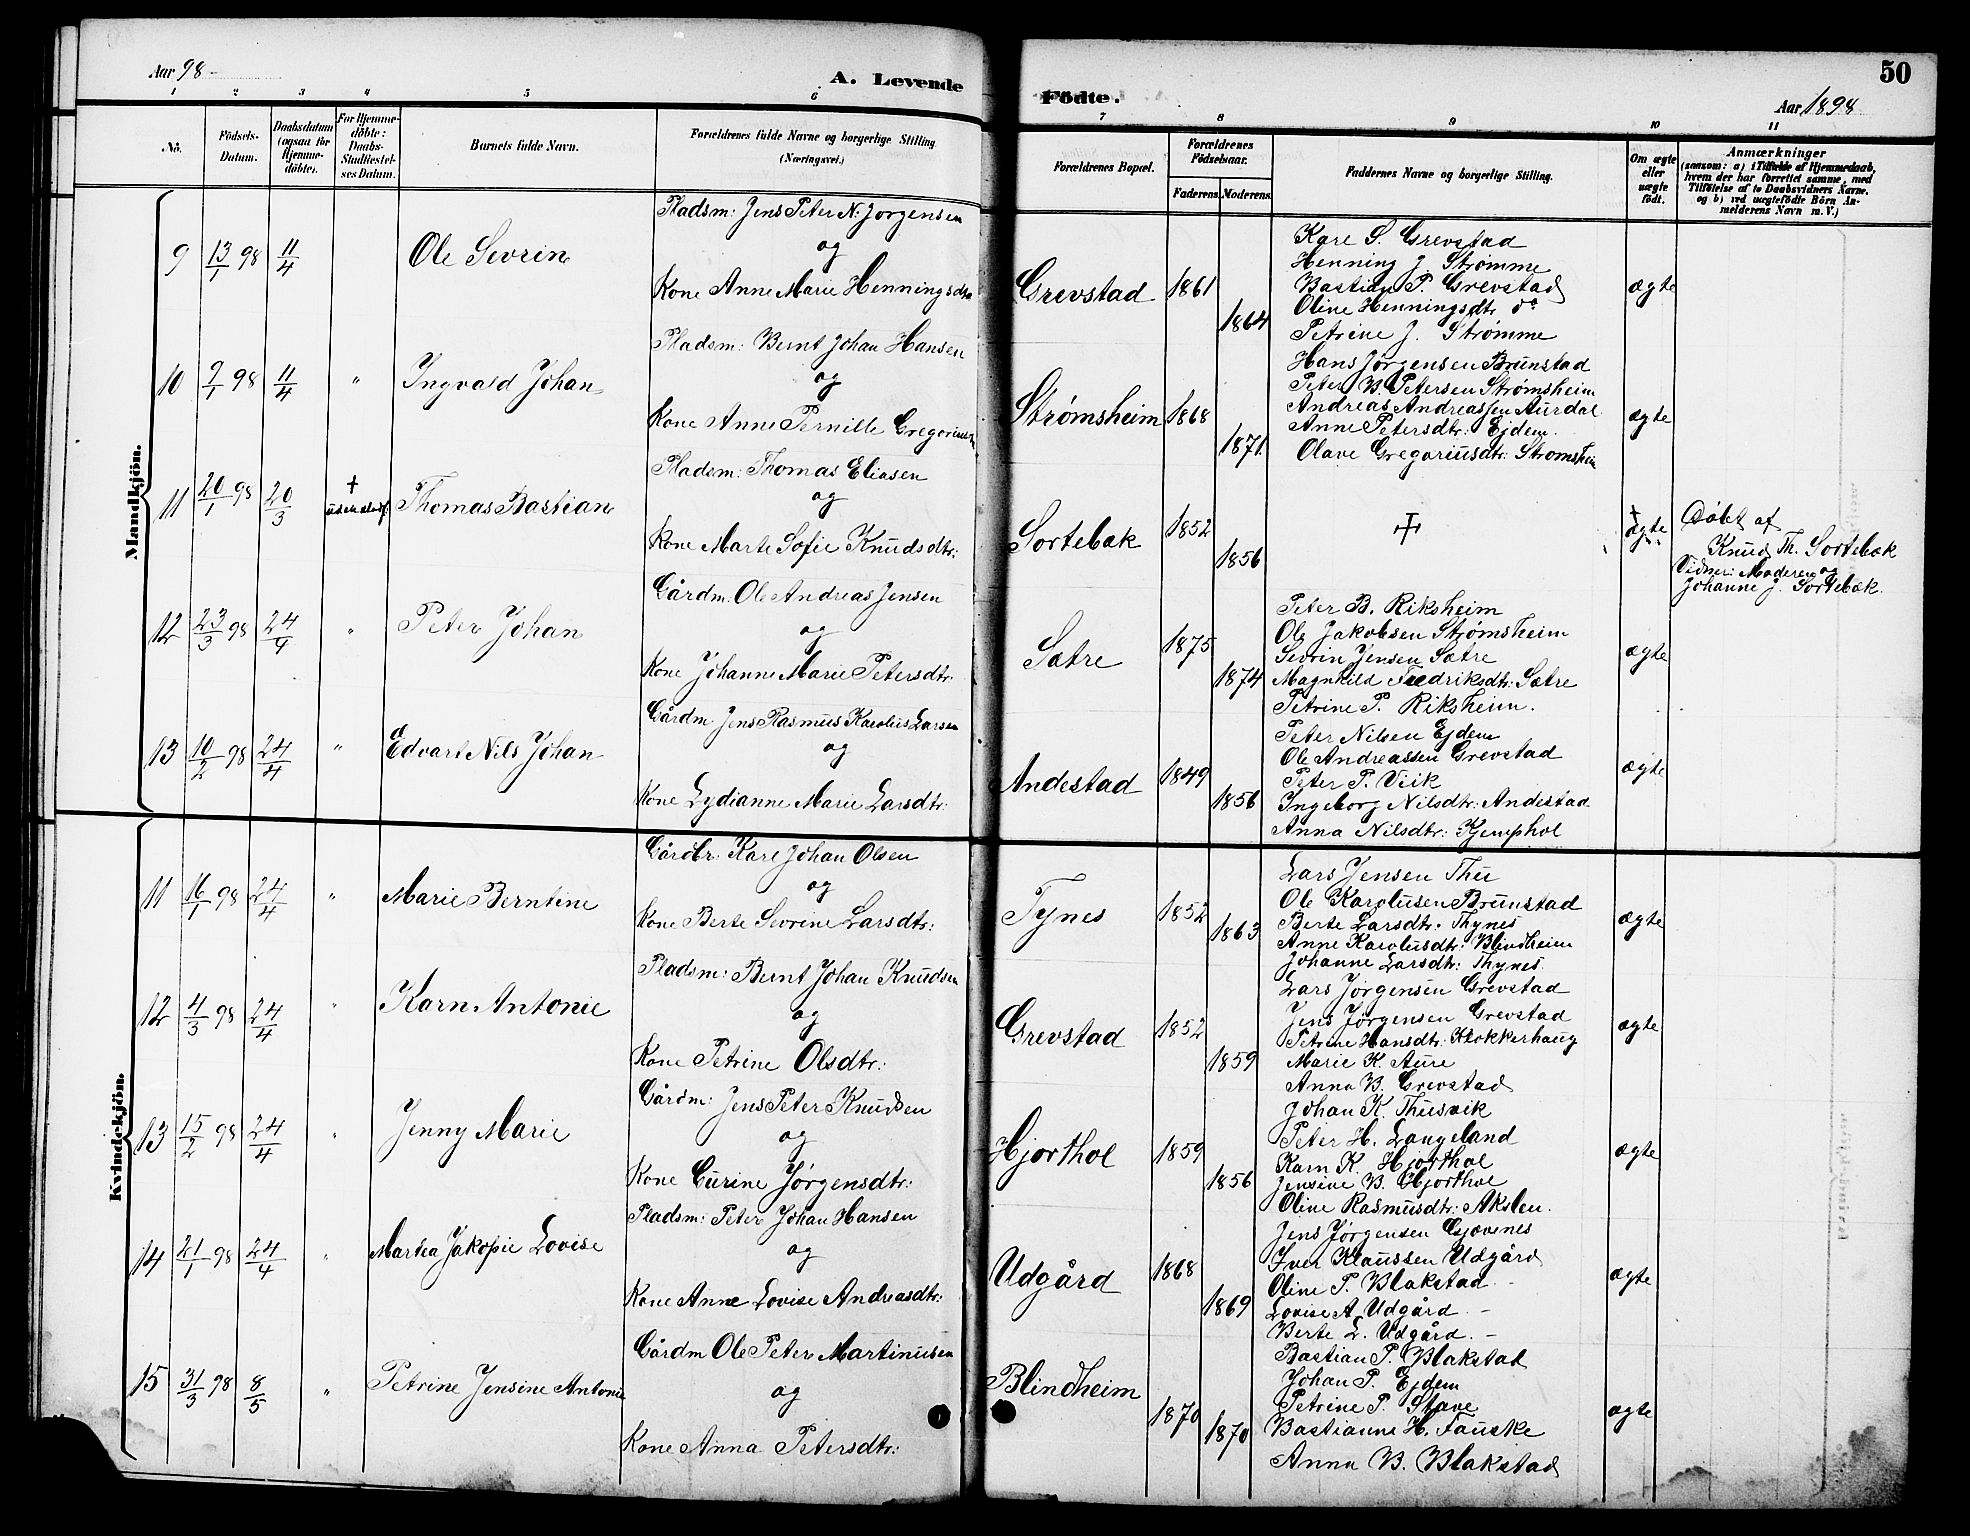 Aar 98-
A. Levende
1 2 3 4 5 6
No.
Födsels-
Datum.
Daabsdatum
(ogsaa for
Hjemme-
döbte).
For Hjemme-
döbte:
Daabs-
Stadfæstel-
ses Datum.
Barnets fulde Navn.
Forældrenes fulde Navne og borgerlige Stilling
(Næringsvei.)
Mandkjön.
9 13/1 98 11/4 Ole Sevrin
Pladsm: Jens Peter N. Jørgensen
og
Kone Anne Marie Henningsdtr
10 9/1 98 11/4 " Ingvald Johan
Pladsm: Bernt Johan Hansen
og
Kone Anne Pernille Gregoriusdtr
11 20/1 98 20/3 + Thomas Bastian
Pladsm: Thomas Eliasen
og
Kone Marte Sofie Knudsdtr:
12 23/3 98 24/4 " Peter Johan
Gårdm: Ole Andreas Jensen
og
Kone Johanne Marie Petersdtr:
13 10/2 98 24/4 " Edvart Nils Johan
Gårdm Jens Rasmus Karolus Larsen
og
Kone Lydianne Marie Larsdtr:
Kvindekjön.
11 16/1 98 24/4 " Marie Berntine
Gårdbr: Kare Johan Olsen
og
Kone Berte Sevrine Larsdtr:
12 4/3 98 24/4 " Karn Antonie
Pladsm: Bernt Johan Knudsen
og
Kone Petrine Olsdtr:
13 15/2 98 24/4 " Jenny Marie
Gårdm: Jens Peter Knudsen
og
Kone Gurine Jørgensdtr:
14 21/1 98 24/4 " Martea Jakopie Lovise
Pladsm: Peter Johan Hansen
og
Kone Anne Lovise Andreasdtr:
15 31/3 98 8/5 " Petrine Jensine Antonie
Gårdm Ole Peter Martinusen
og
Kone Anna Petersdtr:
50
Födte.
Aar 1898
7 8 9 10 11
Forældrenes Bopæl.
Forældrenes
Födselsaar.
Faderens. Moderens.
Faddernes Navne og borgerlige Stilling.
Om ægte
eller
uægte
födt.
Anmærkninger
(saasom: a) i Tilfælde af Hjemmedaab,
hvem der har forrettet samme, med
Tilföielse af to Daabsvidners Navne,
og b) ved uægtefödte Börn An-
melderens Navn m. V.)
Grevstad 1861 1864 ægte
Kare S. Grevstad
Henning J. Strømme
Bastian P. Grevstad
Oline Henningsdtr do
Petrine J. Strømme
Strømsheim 1868 1871. ægte
Hans Jørgensen Brunstad
Peter B. Petersen Strømsheim
Andreas Andreassen Aurdal
Anne Petersdtr: Ejdem.
Olave Gregoriusdtr: Strømsheim
Sortebæk 1852 1856 + + ægte
Døbt af
Knud Th. Sortebæk
Vidner: Moderen og
Johanne J. Sortebæk.
Sætre 1875 1874 ægte
Peter B. Riksheim
Ole Jakobsen Strømsheim
Sevrin Jensen Sætre
Magnhild Fredriksdtr: Sætre
Petrine P. Riksheim.
Andestad 1849 1856 ægte
Peter Nilsen Ejdem
Ole Andreassen Grevstad
Peter P. Viik
Ingeborg Nilsdtr: Andestad
Anna Nilsdtr: Kjemphol
Tynes 1852 1863 ægte
Lars Jensen Thu
Ole Karolusen Brunstad
Berte Larsdtr: Thynes
Anne Karolusdtr: Blindheim
Johanne Larsdtr: Thynes.
Grevstad 1852 1859 ægte
Lars Jørgensen Grevstad
Jens Jørgensen Grevstad
Petrine Hansdtr: Klokkerhaug
Marie K. Aure
Anna B. Grevstad
Hjorthol 1859 1856 ægte
Johan K. Thusvik
Peter H. Langeland
Karn K. Hjorthol
Jensine B. Hjorthol
Oline Rasmusdtr: Akslen.
Udgård 1868 1869 ægte
Jens Jørgensen Gjøvenes
Iver Klaussen Udgård
Oline P. Blakstad -
Lovise A. Udgård -
Berte L. Udgård. -
Blindheim 1870 1870 ægte
Bastian P. Blakstad
Johan P. Ejdem
Petrine P. Stave
Bastianne H. Fauske
Anna B. Blakstad